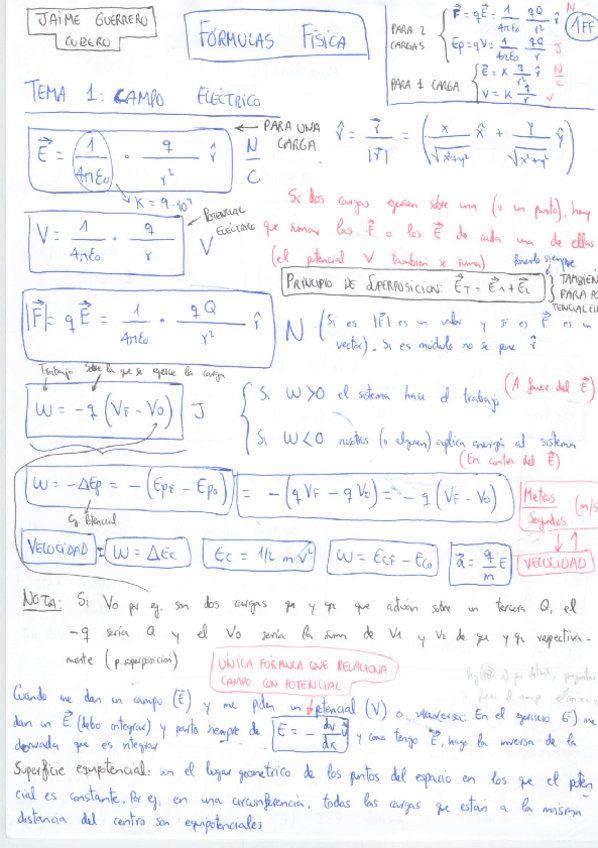 JAIME GUERRERO
CUBERO
FÓRMULAS FÍSICA
1FF
PARA 2
CARGAS
F⃗ = qE⃗ = 1/4πε₀ qQ/r² r̂ N
Ep = qV = 1/4πε₀ qQ/r J
PARA 1 CARGA
E⃗ = K q/r² r̂ N/C
V = K q/r V
TEMA 1: CAMPO ELÉCTRICO
E⃗ = 1/4πε₀ · q/r² r̂ N/C
← PARA UNA
CARGA
K = 9·10⁹
r̂ = r⃗/|r⃗| = (x/√x²+y² x̂ + y/√x²+y² ŷ)
V = 1/4πε₀ · q/r V
POTENCIAL
ELÉCTRICO
Si dos cargas ejercen sobre una (o un punto), hay
que sumar las F⃗ o los E⃗ de cada una de ellas
(el potencial V también se suma)
Poniendo siempre
PRINCIPIO DE SUPERPOSICIÓN: E⃗T = E⃗1 + E⃗2
TAMBIÉN
PARA PO
TENCIAL
|F⃗| = qE⃗ = 1/4πε₀ · qQ/r² r̂ N
(Si es |F⃗| es un valor y si es F⃗ es un
vector). Si es módulo no se pone r̂
Trabajo Sobre la que se ejerce la carga
W = -q (VF - V0) J
Si W>0 el sistema hace el trabajo (A favor del E⃗)
Si W<0 nosotros (o alguien) aplica energía al sistema
(En contra del E⃗)
W = -ΔEp = -(EpF - Ep0) = -(qVF - qV0) = -q (VF - V0)
Eg. Potencial
Metros
Segundos
(m/s
VELOCIDAD
VELOCIDAD: W = ΔEc
Ec = 1/2 mv²
W = EcF - Ec0
a⃗ = q/m E
NOTA: Si V0 por ej. son dos cargas q1 y q2 que actúan sobre un tercera Q, el
-q sería Q y el V0 sería la suma de V1 y V2 de q1 y q2 respectiva-
mente (p. superposición)
ÚNICA FÓRMULA QUE RELACIONA
CAMPO CON POTENCIAL
Cuando me dan un campo (E⃗) y me piden un potencial (V) o viceversa: En el ejercicio 5) me
dan un E⃗ (debo integrar) y parto siempre de E⃗ = - dv/dx x̂ y como tengo E⃗, hago la inversa de la
derivada que es integrar
Superficie equipotencial: son el lugar geométrico de los puntos del espacio en los que el poten
cial es constante. Por ej, en una circunferencia, todas las cargas que estén a la misma
distancia del centro son equipotenciales